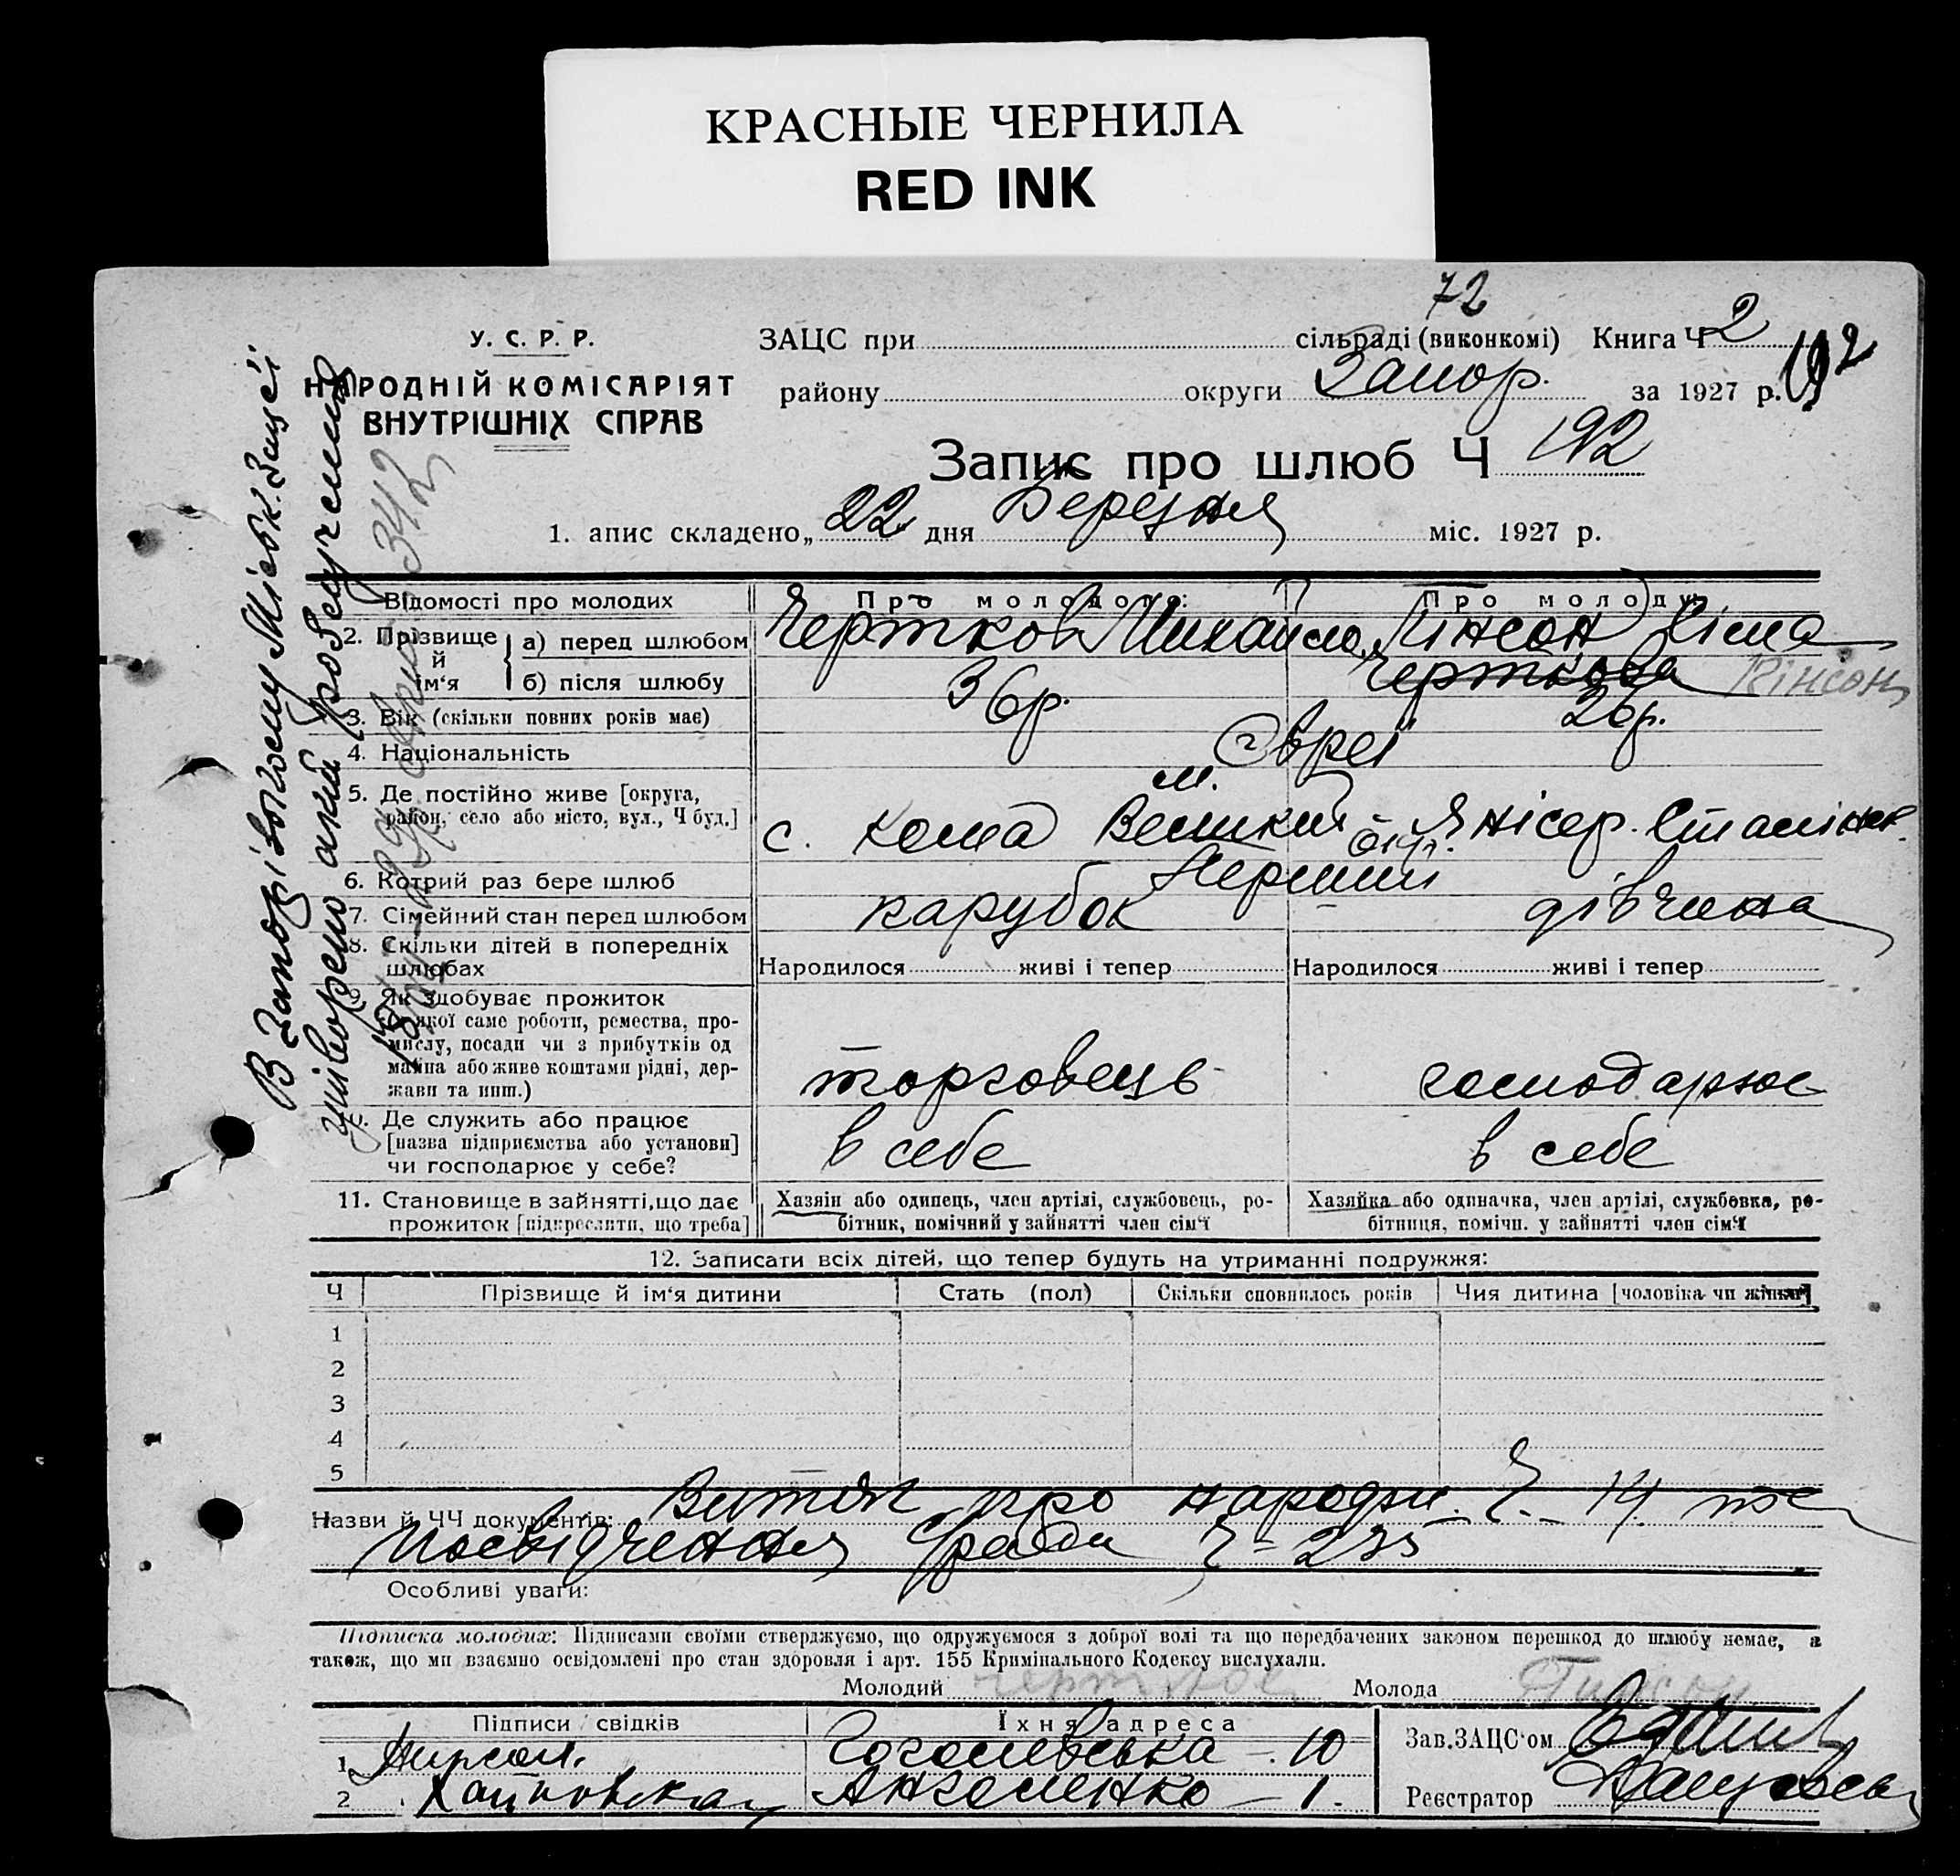 КРАСНЫЕ ЧЕРНИЛА
RED INK
72
У. С. Р. Р.
НАРОДНІЙ КОМІСАРІЯТ
ВНУТРІШНІХ СПРАВ
ЗАЦС при сільраді (виконкомі) Книга Ч 2
району округи Запор. за 1927 р. 192
Запис про шлюб Ч 192
1. апис складено „ 22 дня Березня міс. 1927 р.
В Запорізькому Міськ. Загсі
Відомості про молодих Про молодого: Про молоду:
2. Прізвище й ім‘я а) перед шлюбом Чертков Михайло Кінсон Сіма
б) після шлюбу Черткова Кінсон
3. Вік (скільки повних років має) 36р. 26р.
4. Національність Євреї
5. Де постійно живе [округа, район, село або місто, вул., Ч буд.] с. м.
6. Котрий раз бере шлюб Перший
7. Сімейний стан перед шлюбом парубок дівчина
8. Скільки дітей в попередніх шлюбах Народилося живі і тепер Народилося живі і тепер
9. Як здобуває прожиток
(з якої саме роботи, ремества, про-
мислу, посади чи з прибутків од
майна або живе коштами рідні, дер-
жави та инш.) торговець господарює
Де служить або працює
[назва підприємства або установи]
чи господарює у себе? в себе в себе
11. Становище в зайнятті, що дає
прожиток [підкреслити, що треба]
Хазяін або одинець, член артілі, службовець, ро-
бітник, помічний у зайнятті член сім‘ї
Хазяйка або одиначка, член артілі, службовка, ро-
бітниця, помічн. у зайнятті член сім‘ї
12. Записати всіх дітей, що тепер будуть на утриманні подружжя:
Ч Прізвище й ім‘я дитини Стать (пол) Скільки сповнилось років Чия дитина [чоловіка чи жінки]
1
2
3
4
5
Назви й ЧЧ документів: Витяг про народж. Ч. 14
Посвідчення Ч-235
Особливі уваги:
Підписка молодих: Підписами своїми стверджуємо, що одружуємося з доброї волі та що передбачених законом перешкод до шлюбу немає, а
також, що ми взаємно освідомлені про стан здоровля і арт. 155 Кримінального Кодексу вислухали.
Молодий Молода
Підписи свідків Їхня адреса
1 Гоголевська - 10
2 - 1.
Зав. ЗАЦС‘ом
Реєстратор